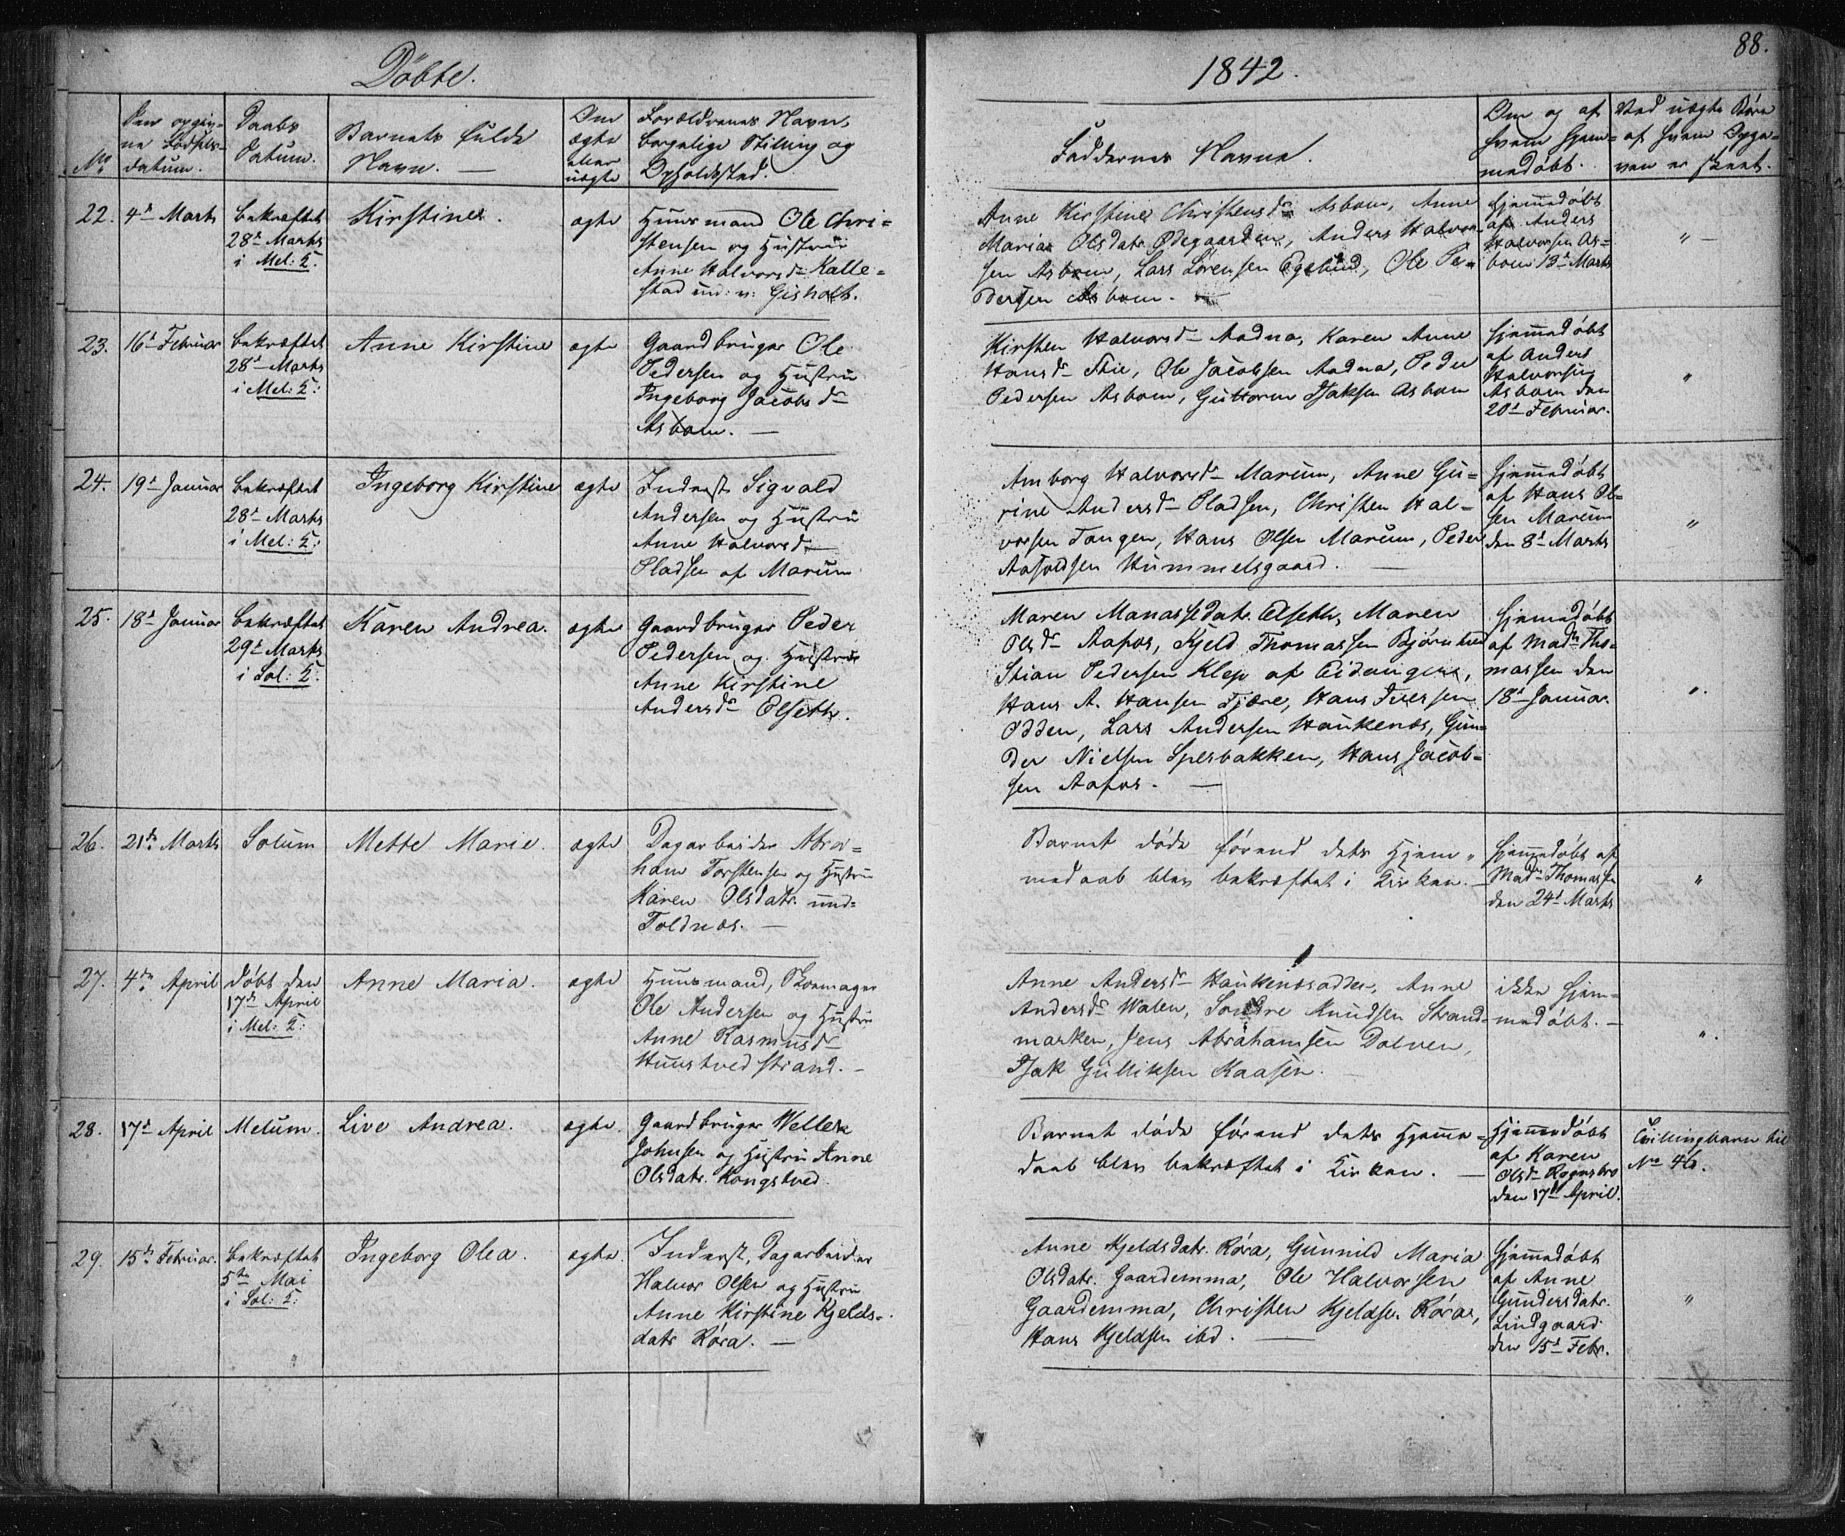 Døbte.
1842.
88.
No
Den opgiv-
ne Fødsels-
datum.
Daabs
Datum.
Barnets fulde
Navn. —
Om
ægte
eller
uægte
Forældrenes Navn,
borgelige Stilling og
Opholdssted.
Faddernes Navne.
Om og af
hvem hjem-
medøbt.
Ved uægte Børn
af hvem Opga-
ven er skeet.
22.
4d Marts
bekræftet
28d Marts
i Mel: K.
Kirstine.
ægte
Huusmand Ole Chri-
stensen og Hustrue
Anne Halvorsdr Kalle-
stad und: n: Gisholt.
Anne Kirstine Christensdr Asbom, Anne
Maria Olsdatr. Ødegaarden, Anders Halvor-
sen Asbom, Lars Sørensen Egelund, Ole Pe-
dersen Asbom. —
hjemmedøbt
af Anders
Halvorsen As-
bom 13d Marts
" —
23.
16d Februar
bekræftet
28d Marts
i Mel: K:
Anne Kirstine
ægte
Gaardbruger Ole
Pedersen og Hustru
Ingeborg Jacobsdr
Asbom. —
Kirsten Halvorsdr Aadna, Karen Anne
Hansdr Stie, Ole Jacobsen Aadna, Peder
Pedersen Asbom, Guttorm Isaksen Asbom
hjemmedøbt
af Anders
Halvorsen
Asbom den
20d Februar.
"
24.
19d Januar
bekræftet
28d Marts
i Mel: K:
Ingeborg Kirstine
ægte
Inderst Sigvald
Andersen og Hustru
Anne Halvorsdr
Pladsen af Marum
Amborg Halvorsdr Marum, Anne Gu-
rine Andersdr Pladsen, Christen Hal-
vorsen Tangen, Hans Olsen Marum, Peder
Hummelgaard. —
hjemmedøbt
af Hans Ol-
sen Marum
den 8d Marts
"
25.
18d Januar
bekræftet
29d Marts
i Sol: K.
Karen Andrea.
ægte
Gaardbruger Peder
Pedersen og Hustru
Anne Kirstine
Andersdr Elseth.
Maren Manassedatr. Elseth, Maren
Olsdr Aafos, Kjeld Thomassen Bjørntved
Stian Pedersen Klep af Eidanger,
Hans A. Hansen Fjære, Hans Iversen
Odden, Lars Andersen Haukenæs, Gun-
der Nielsen Spersbakken, Hans Jacob-
sen Aafos. —
hjemmedøbt
af Madm Tho-
massen den
18d Januar.
".
26.
21de Marts
Solum
Mette Marie.
ægte
Dagarbeider Abra-
ham Torstensen og Hustru
Karen Olsdatr. und-
Toldnæs. —
Barnet døde førend dets Hjem-
medaab blev bekræftet i Kirken. —
hjemmedøbt af
Madm Thomassen
den 24d Marts
"
27.
4de April
døbt den
17de April
i Mel: K:
Anne Maria.
ægte
Huusmand, Skomager
Ole Andersen og Hustru
Anne Rasmusdr
Huustvedstrand. —
Anne Andersdr Haukenæsodden, Anne
Andersdr Walen, Sondre Knudsen Strand-
marken, Jens Abrahamsen Dalven,
Isak Gulliksen Kaasen. —
ikke hjem-
medøbt. —
".
28.
17d April
Melum.
Live Andrea.
ægte.
Gaardbruger Wellek
Johnsen og Hustru Anne
Olsdatr. Kongstved.
Barnet døde førend dets Hjemme-
daab blev bekræftet i Kirken. —
Hjemmedøbt
af Karen
Olsdr
den 17de April.
Tvillingbarn til
No 46.
29.
15de Februar.
bekræftet
5te Mai
i Sol: K:
Ingeborg Olea.
ægte.
Inderst, Dagarbeider
Halvor Olsen og Hustru
Anne Kirstine Kjelds-
datr Røra. —
Anne Kjeldsdatr. Røra, Gunnild Maria
Olsdatr. Gaardemma, Ole Halvorsen
Gaardemma, Christen Kjeldsen Røra,
Hans Kjeldsen ibd. —
hjemmedøbt
af Anne
Gundersdatr.
Lindgaard
den 15d Febr.
"